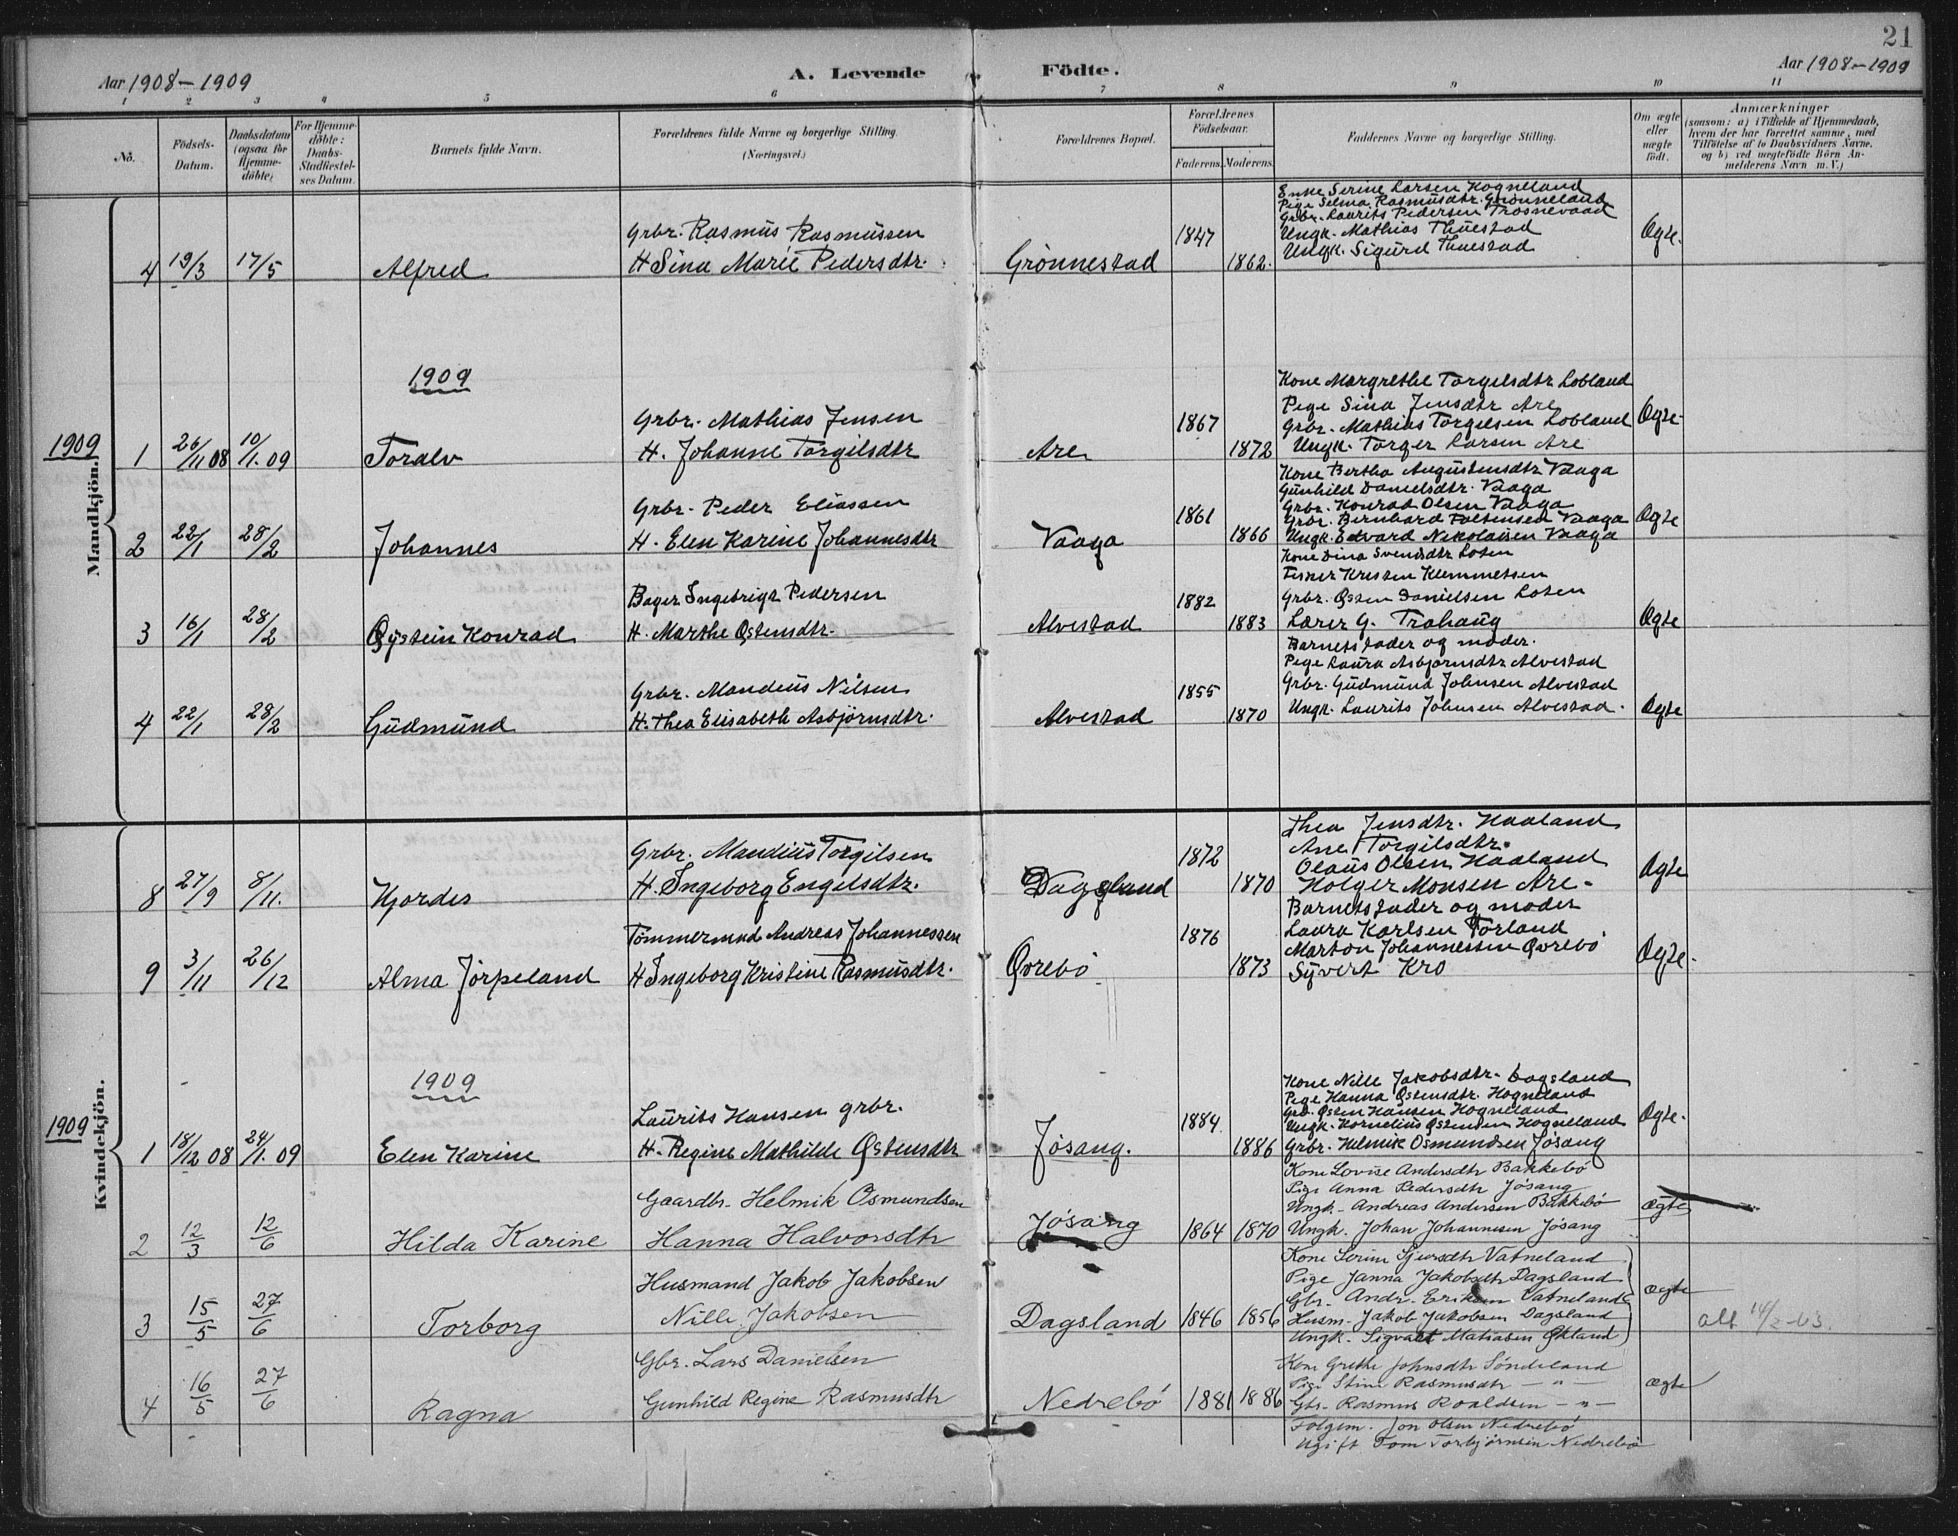 21
Aar 1908–1909
A. Levende Födte.
Aar 1908–1909
1 2 3 4 5 6 7 8 9 10 11
No.
Födsels-Datum.
Daabsdatum (ogsaa for Hjemme-döbte)
For Hjemme-döbte: Daabs-Stadfæstel-ses Datum.
Barnets fulde Navn.
Forældrenes fulde Navne og borgerlige Stilling. (Næringsvei.)
Forældrenes Bopæl.
Forældrenes Födselsaar.
Faderens. Moderens.
Faddernes Navne og borgerlige Stilling.
Om ægte eller uægte födt.
Anmærkninger
(saasom: a) i Tilfælde af Hjemmedaab, hvem der har forrettet samme, med Tilföielse af to Daabsvidners Navne, og b) ved uægtefödte Börn Anmelderens Navn m. V.)
Mandkjön.
4 19/3 17/5 Alfred
Grbr. Rasmus Rasmussen
H Sina Marie Pedersdtr.
Grønnestad 1847 1862.
Enke Serine Larsen Hogneland
Pige Selma Rasmusdtr. Grønneland
Grbr. Laurits Pedersen Trosnevaad
Ungk. Mathias Thuestad
Ungk. Sigurd Thuestad
Ægte.
1909
1909
1 26/11 08 10/1. 09 Toralv
Grbr. Mathias Jensen
H. Johanne Torgilsdtr
Are 1867 1872
Kone Margrethe Torgilsdtr Lobland
Pige Sina Jensdtr Are
Grbr. Mathias Torgilsen Lobland
Ungk. Torger Larsen Are
Ægte
2 22/1 28/2 Johannes
Grbr. Peder Eliassen
H. Elen Karine Johannesdtr
Vaaga 1861 1866
Kone Bertha Augustensdtr Vaaga
Gunhild Danielsdtr. Vaaga
Grbr. Konrad Olsen Vaaga
Grbr. Bernhard Tostensen Vaaga
Ungk. Edvard Nikolaisen Vaaga
Ægte
3 16/1 28/2 Øystein Konrad
Bager Ingebrigt Pedersen
H. Marthe Østensdtr.
Alvestad 1882 1883
Kone Dina Svendsdtr Losen
Fisker Kristen Klemmetsen
Grbr. Østen Danielsen Losen
Lærer G. Trohaug
Barnets fader og moder.
Ægte
4 22/1 28/2 Gudmund
Grbr. Mandius Nilsen
H. Thea Elisabeth Asbjørnsdtr.
Alvestad 1855 1870
Pige Laura Asbjørnsdtr Alvestad
Grbr. Gudmund Johnsen Alvestad
Ungk. Laurits Johnsen Alvestad.
Ægte
Kvindekjön.
8 27/9 8/11. Hjordis
Grbr. Mandius Torgilsen
H. Ingeborg Engelsdtr.
Dagsland 1872 1870
Thea Jensdtr. Haaland
Ane Torgilsdtr.
Olaus Olsen Haaland
Holger Monsen Are.
Barnets fader og moder
Ægte
9 3/11 26/12 Alma Jörpeland
Tømmermand Andreas Johannessen
H Ingeborg Kristine Rasmusdtr.
Øvrebö 1876 1873
Laura Karlsen Forland
Marton Johannessen Øvrebö
Syvert Kro
Ægte.
1909
1909
1 18/12 08 24/1. 09 Elen Karine
Laurits Hansen grbr.
H. Regine Mathilde Østensdtr
Jøsang. 1884. 1886
Kone Nille Jakobsdtr. Dagsland
Pige Hanna Østensdtr. Hogneland
Grb. Østen Hansen Hogneland
Ungk. Kornelius Østensen Hogneland
Grbr. Helmik Osmundsen Jøsang
Ægte.
2 12/3 12/6 Hilda Karine
Gaardbr. Helmik Osmundsen
Hanna Halvorsdtr
Jøsang 1864 1870
Kone Lovise Andersdtr Bakkebø
Pige Anna Pedersdtr Jøsang
Ungk. Andreas Andersen Bakkebø
Ungk. Johan Johannesen Jøsang
ægte
3 15/5 27/6 Torborg
Husmand Jakob Jakobsen
Nille Jakobsen
Dagsland 1846 1856
Kone Serine Sjursdtr Vatneland
Pige Janna Jakobsdtr Dagsland
Gbr. Andr. Eriksen Vatneland
Husm. Jakob Jakobsen Dagsland
Ungk. Sigvart Matiasen Økland
ægte
att 14/2-63.
4 16/5 27/6 Ragna
Gbr. Lars Danielsen
Gunhild Regine Rasmusdtr
Nedrebö 1881 1886
Kone Grethe Johnsdtr Søndeland
Pige Stine Rasmusdtr — " —
Gbr. Rasmus Roaldsen — " —
Folgem. Jon Olsen Nedrebö
Ugift Tom Torbjørnsen Nedrebø
ægte